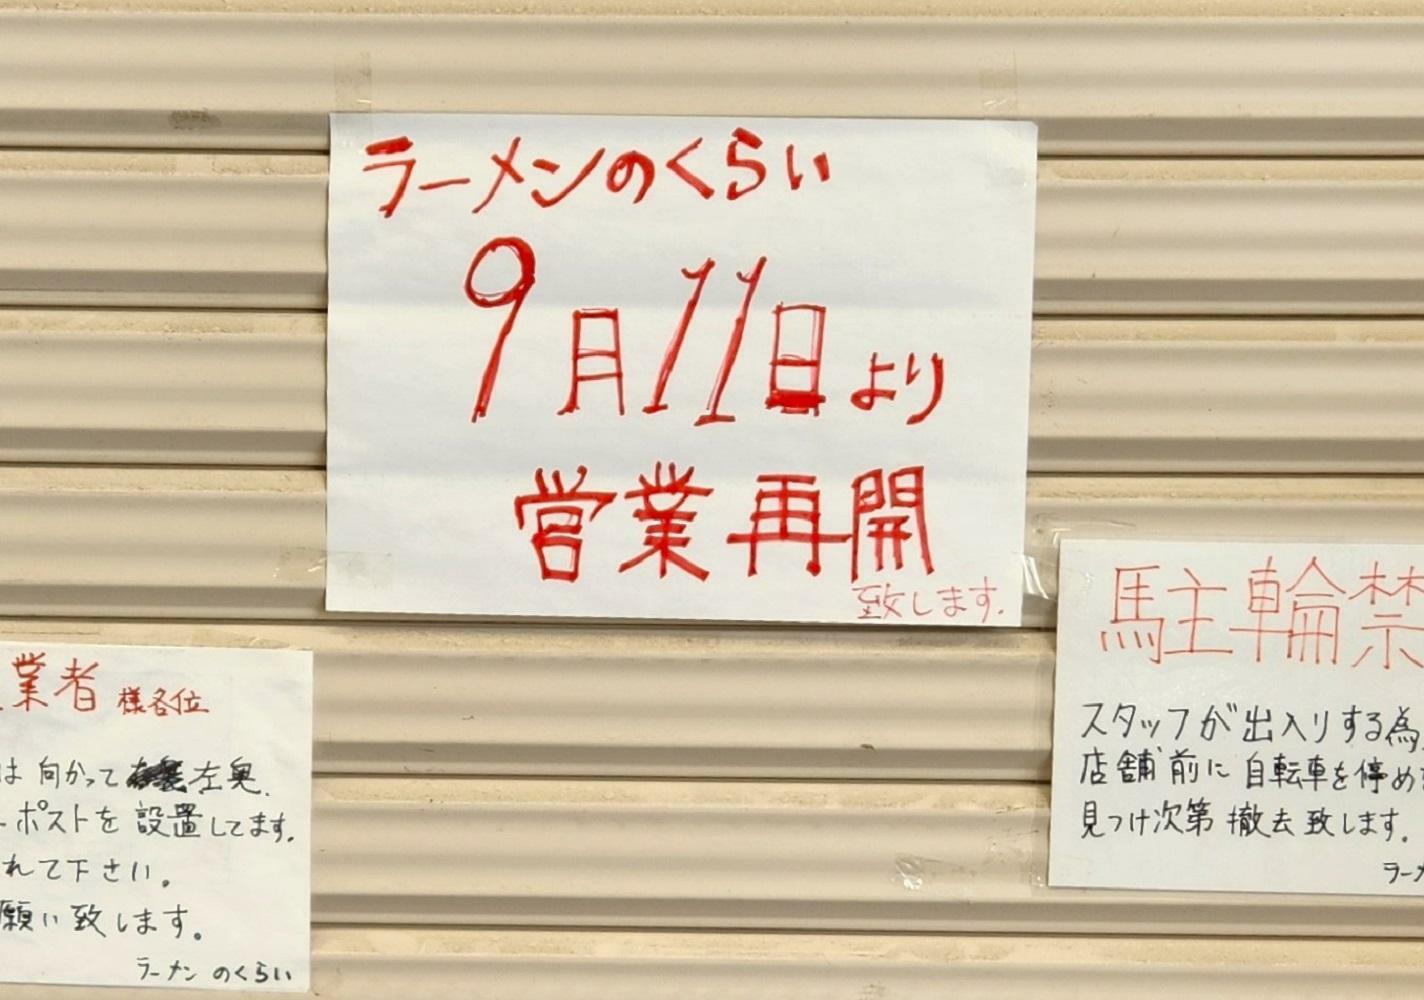 ラーメンのくらい
9月11日より
営業再開
致します.
業者 様各位
は 向かって 左奥.
ポストを 設置してます.
れて下さい。
願い致します。
ラーメン のくらい
駐輪禁
スタッフが出入りする為
店舗前に自転車を停め
見つけ次第 撤去致します.
ラーメ